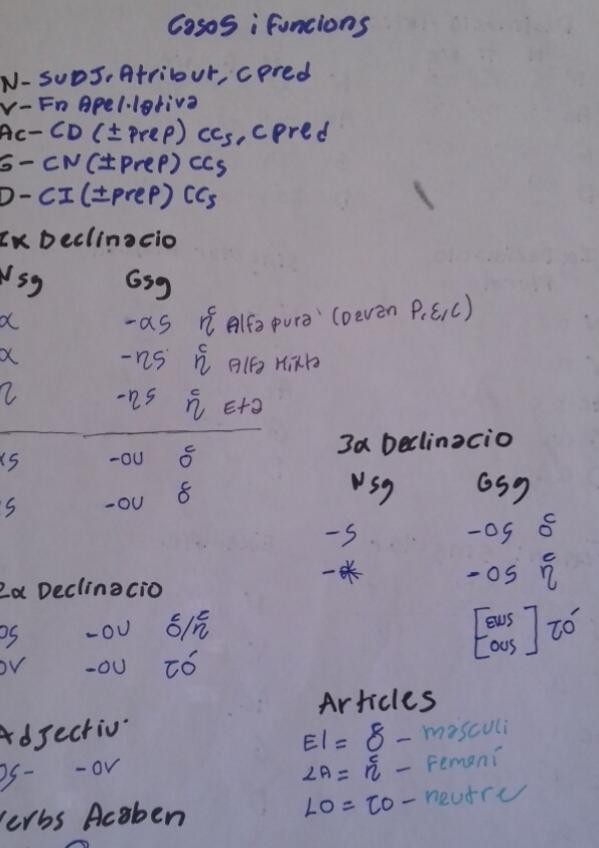 Casos i Funcions
N- SUDJ. Atribut, C pred
V- Fn Apel·lativa
Ac- CD (± prep) CCs, C pred
G - CN (± prep) CCs
D - CI (± prep) CCs
1α Declinacio
Nsg Gsg
α -ας ἡ Alfa pura (Devan P, E, C)
α -ης ἡ Alfa Mixta
η -ης ἡ Eta
ας -ου ὁ
ης -ου ὁ
2α Declinacio
ος -ου ὁ/ἡ
ον -ου τό
Adjectiu
ος- -ον
Verbs Acaben
3α Declinacio
Nsg Gsg
-ς -ος ὁ
-* -ος ἡ
[εως
ους] τό
Articles
El = ὁ - masculi
LA = ἡ - Femení
LO = το - neutre